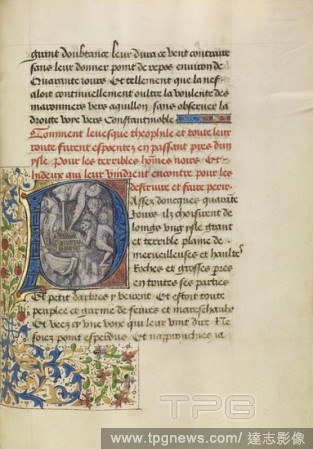 grant doubtance leur dura ce vent contraire
sans leur donner point de repos environ de
Quarante iours Et tellement que la nef
aloit continuellement oultre la voulente des
maronniers vers aquillon sans obseruer la
droitte voye vers Constantinoble
Comment leuesque theophile et toute leur
route furent espouentez en passant pres dun
ysle Pour les terribles hommes noirs Et
hideux qui leur vindrent encontre pour les
destruire et faire perir
Assez doncques quarante
iours ilz choisirent de
loings vng ysle grant
et terrible plaine de
merueilleuses et haultes
Roches et grosses pierres
en toutes ses parties
Et petit darbres y heurent Et estoit toute
peuplee et garnie de feures et mareschaulx
Et veez cy vne voix qui leur vint dire Ne
soiez point esperdue Et napprouchiez ia
TPG
www.tpgnews.com/達志影像